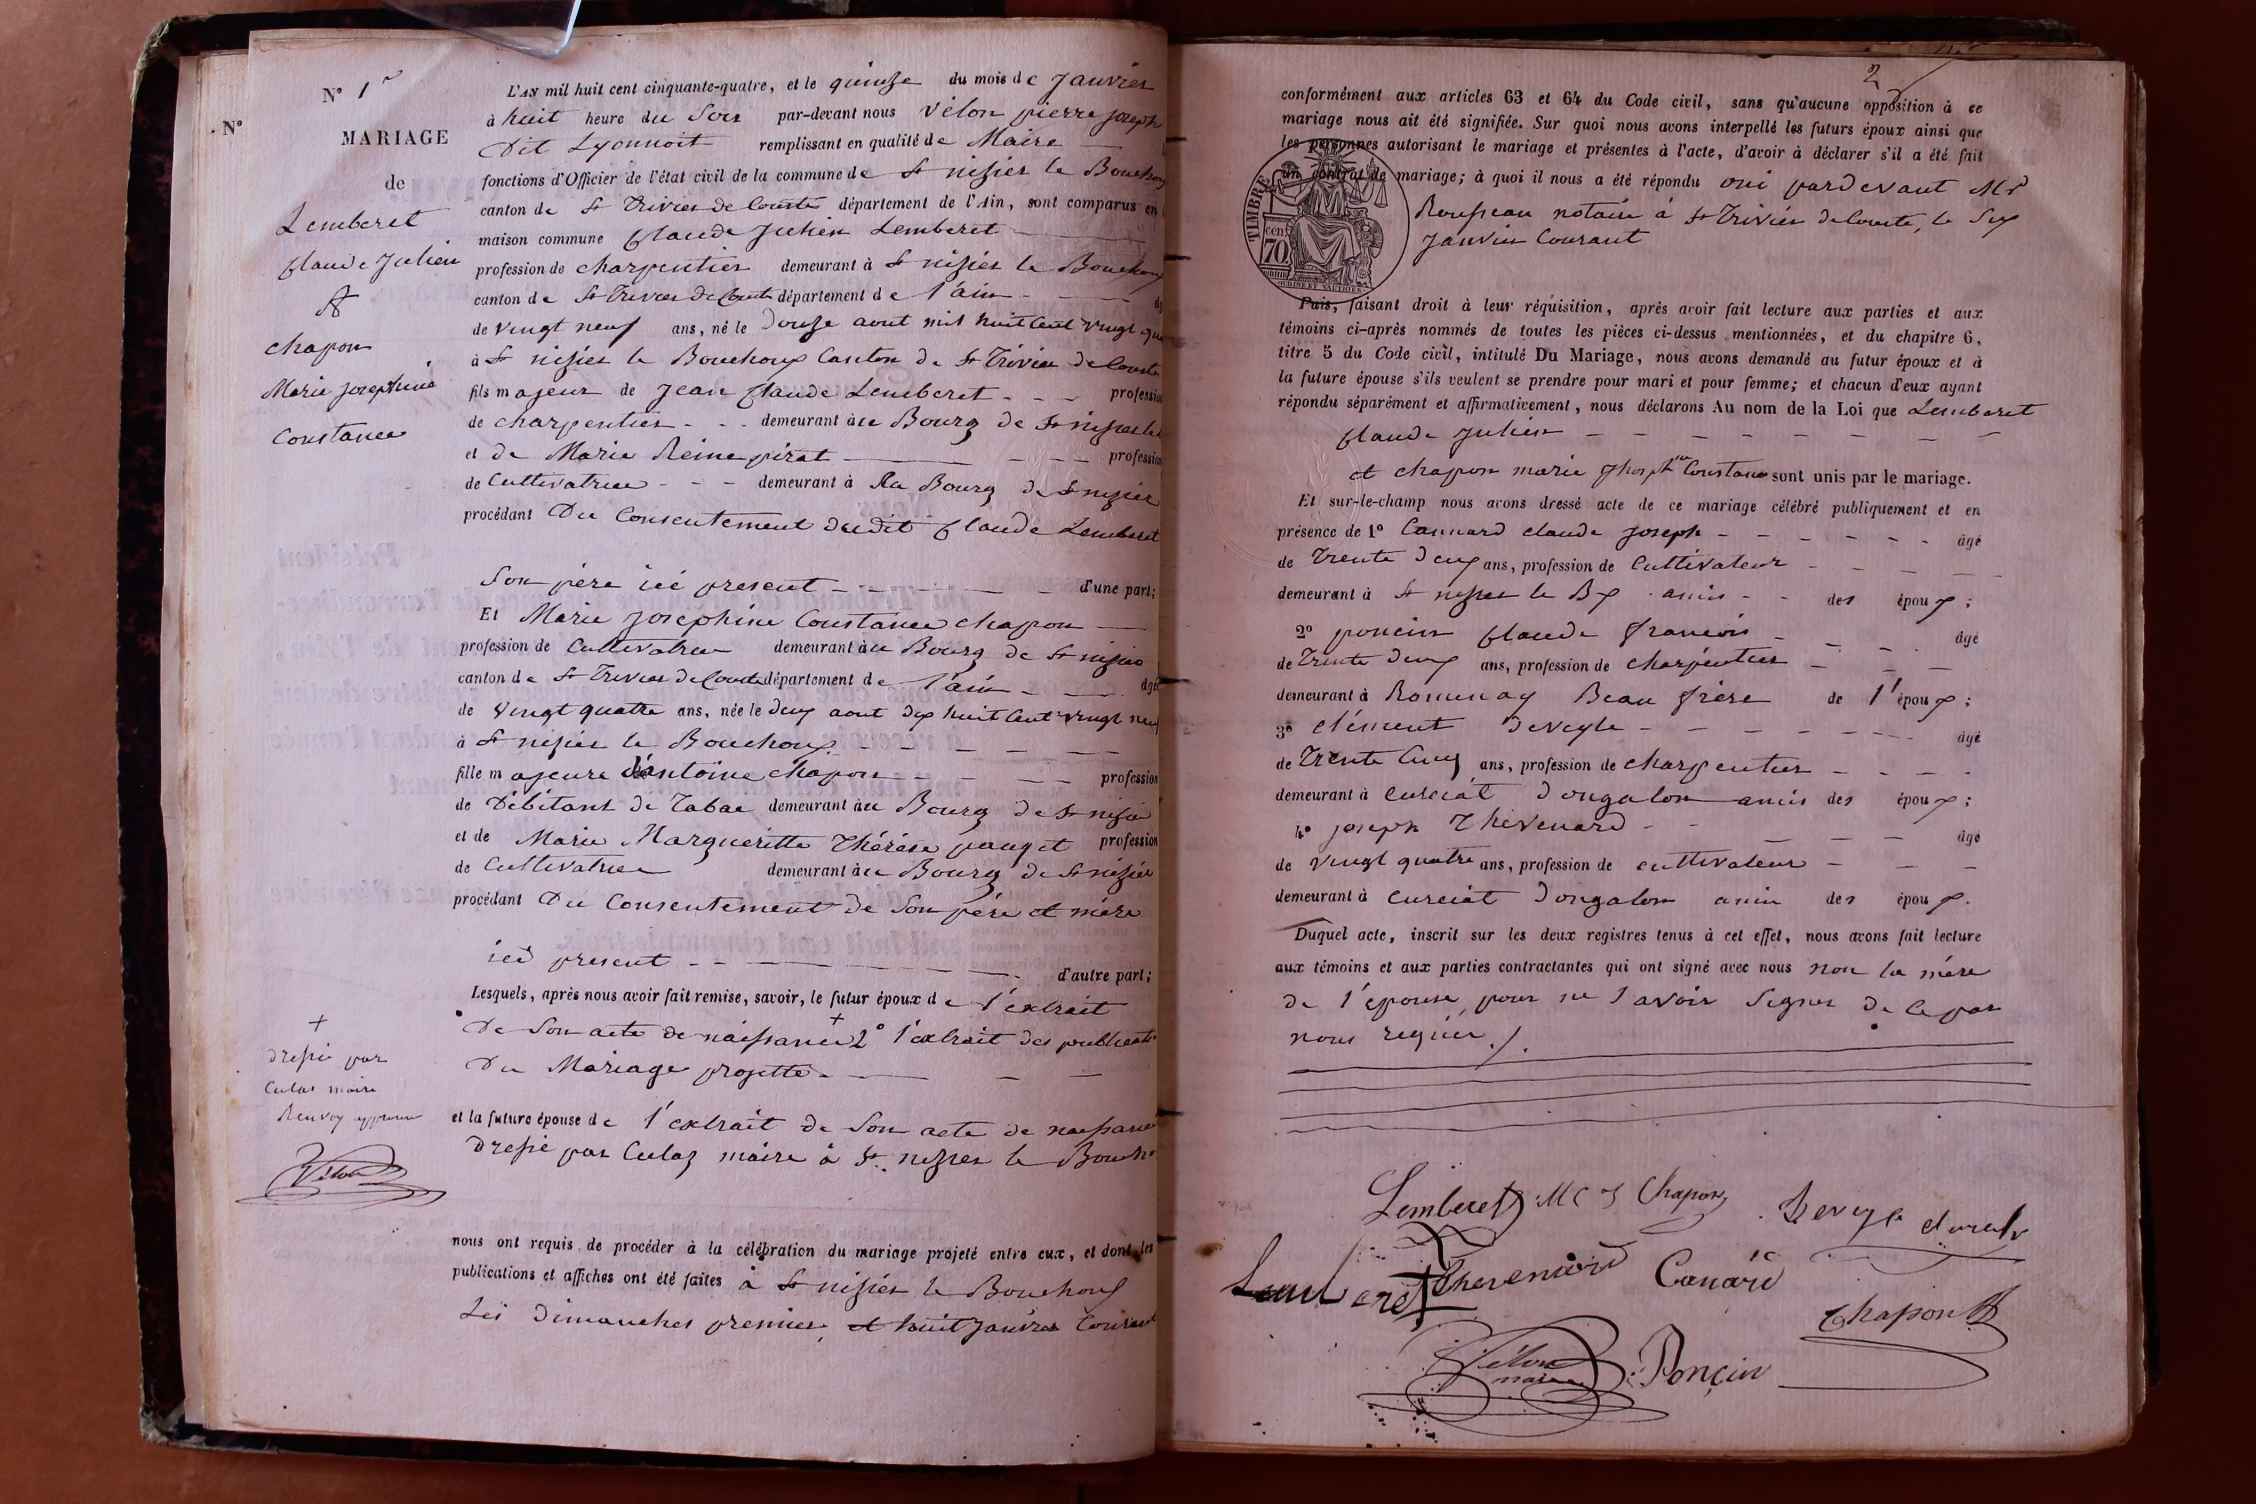 N° 1er
N°
MARIAGE
de
Lemberet
Claude Julien
&
chapon
Marie Josephine
Constance
L'AN mil huit cent cinquante-quatre, et le quinze du mois de Janvier
à huit heure du Soir par-devant nous Vélon pierre joseph
Dit Lyonnoit remplissant en qualité de Maire
fonctions d'Officier de l'état civil de la commune de St nizier le Bouchoux
canton de St Trivier de Courte département de l'Ain, sont comparus en
maison commune Claude Julien Lemberet
profession de charpentier demeurant à St nizier le Bouchoux
canton de St Trivier de Courte département de l'ain
de vingt neuf ans, né le Douze aout mil huit cent vingt
à St nizier le Bouchoux Canton de St Trivier de Courte
fils majeur de Jean Claude Lemberet - - - profession
de charpentier - - - demeurant au Bourg de St nizier le
et de Marie Reine pirat - - - profession
de Cultivatrice - - - demeurant à Au Bourg de St nizier
procédant Du Consentement dudit Claude Lemberet
Son père ici present - - - d'une part;
Et Marie Josephine Constance chapon
profession de Cultivatrice demeurant au Bourg de St nizier
canton de St Trivier de Courte département de l'ain - - - âgé
de vingt quatre ans, née le deux aout dix huit Cent vingt neuf
à St nizier le Bouchoux - - -
fille majeure d'antoine chapon - - - profession
de Débitant de Tabac demeurant au Bourg de St nizier
et de Marie Margueritte Thérèse pauget profession
de Cultivatrice demeurant au Bourg de St nizier
procédant Du Consentement de Son père et mère
ici present - - - d'autre part;
Lesquels, après nous avoir fait remise, savoir, le futur époux de l'extrait
De Son acte de naissance + 2° l'extrait des publications
Du Mariage projetté
et la future épouse de l'extrait de Son acte de naissance
Dressé par Culaz maire à St nizier le Boucho
+
Dressé par
Culaz maire
Renvoy approuvé
Vélon
nous ont requis de procéder à la célébration du mariage projeté entre eux, et dont les
publications et affiches ont été faites à St nizier le Bouchoux
Les Dimanches premier et huit Janvier Courant
2
conformément aux articles 63 et 64 du Code civil, sans qu'aucune opposition à ce
mariage nous ait été signifiée. Sur quoi nous avons interpellé les futurs époux ainsi que
les personnes autorisant le mariage et présentes à l'acte, d'avoir à déclarer s'il a été fait
un contrat de mariage; à quoi il nous a été répondu oui pardevant Mr
Rousseau notaire à St Trivier de Courte, le Six
Janvier Courant
TIMBRE
70 cent
Puis, faisant droit à leur réquisition, après avoir fait lecture aux parties et aux
témoins ci-après nommés de toutes les pièces ci-dessus mentionnées, et du chapitre 6,
titre 5 du Code civil, intitulé Du Mariage, nous avons demandé au futur époux et à
la future épouse s'ils veulent se prendre pour mari et pour femme; et chacun d'eux ayant
répondu séparément et affirmativement, nous déclarons Au nom de la Loi que Lemberet
Claude Julien - - -
et chapon marie Joseph ne Constance sont unis par le mariage.
Et sur-le-champ nous avons dressé acte de ce mariage célébré publiquement et en
présence de 1° Cannard claude Joseph - - - âgé
de Trente Deux ans, profession de Cultivateur - - -
demeurant à St nizier le Bx amis - - des époux;
2° poncin Claude françois - - - âgé
de Trente Deux ans, profession de charpentier - - -
demeurant à Romenay Beau frère de l'époux;
3° clément deveyle - - - âgé
de Trente Cinq ans, profession de charpentier - - -
demeurant à curciat Dongalon amis des époux;
4° joseph Thévenard - - - âgé
de vingt quatre ans, profession de cultivateur - - -
demeurant à curciat Dongalon amis des époux.
Duquel acte, inscrit sur les deux registres tenus à cet effet, nous avons fait lecture
aux témoins et aux parties contractantes qui ont signé avec nous non la mère
de l'épouse, pour ne Savoir Signer De ce par
nous requise ./.
Lemberet M C J Chapon Deveyle
Lemberet Thevenard Canard
Chapon
Vélon maire Ponçin